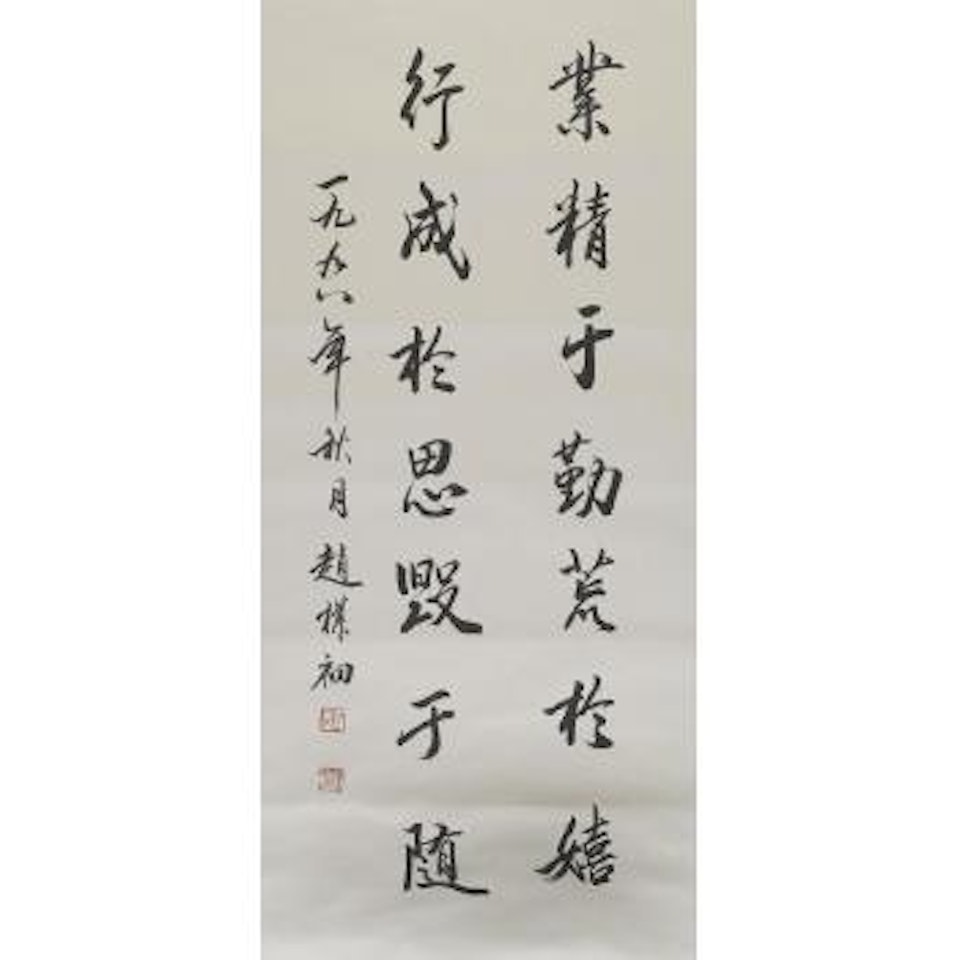 業精于勤荒於嬉
行成於思毁于随
一九九八年秋月趙樸初